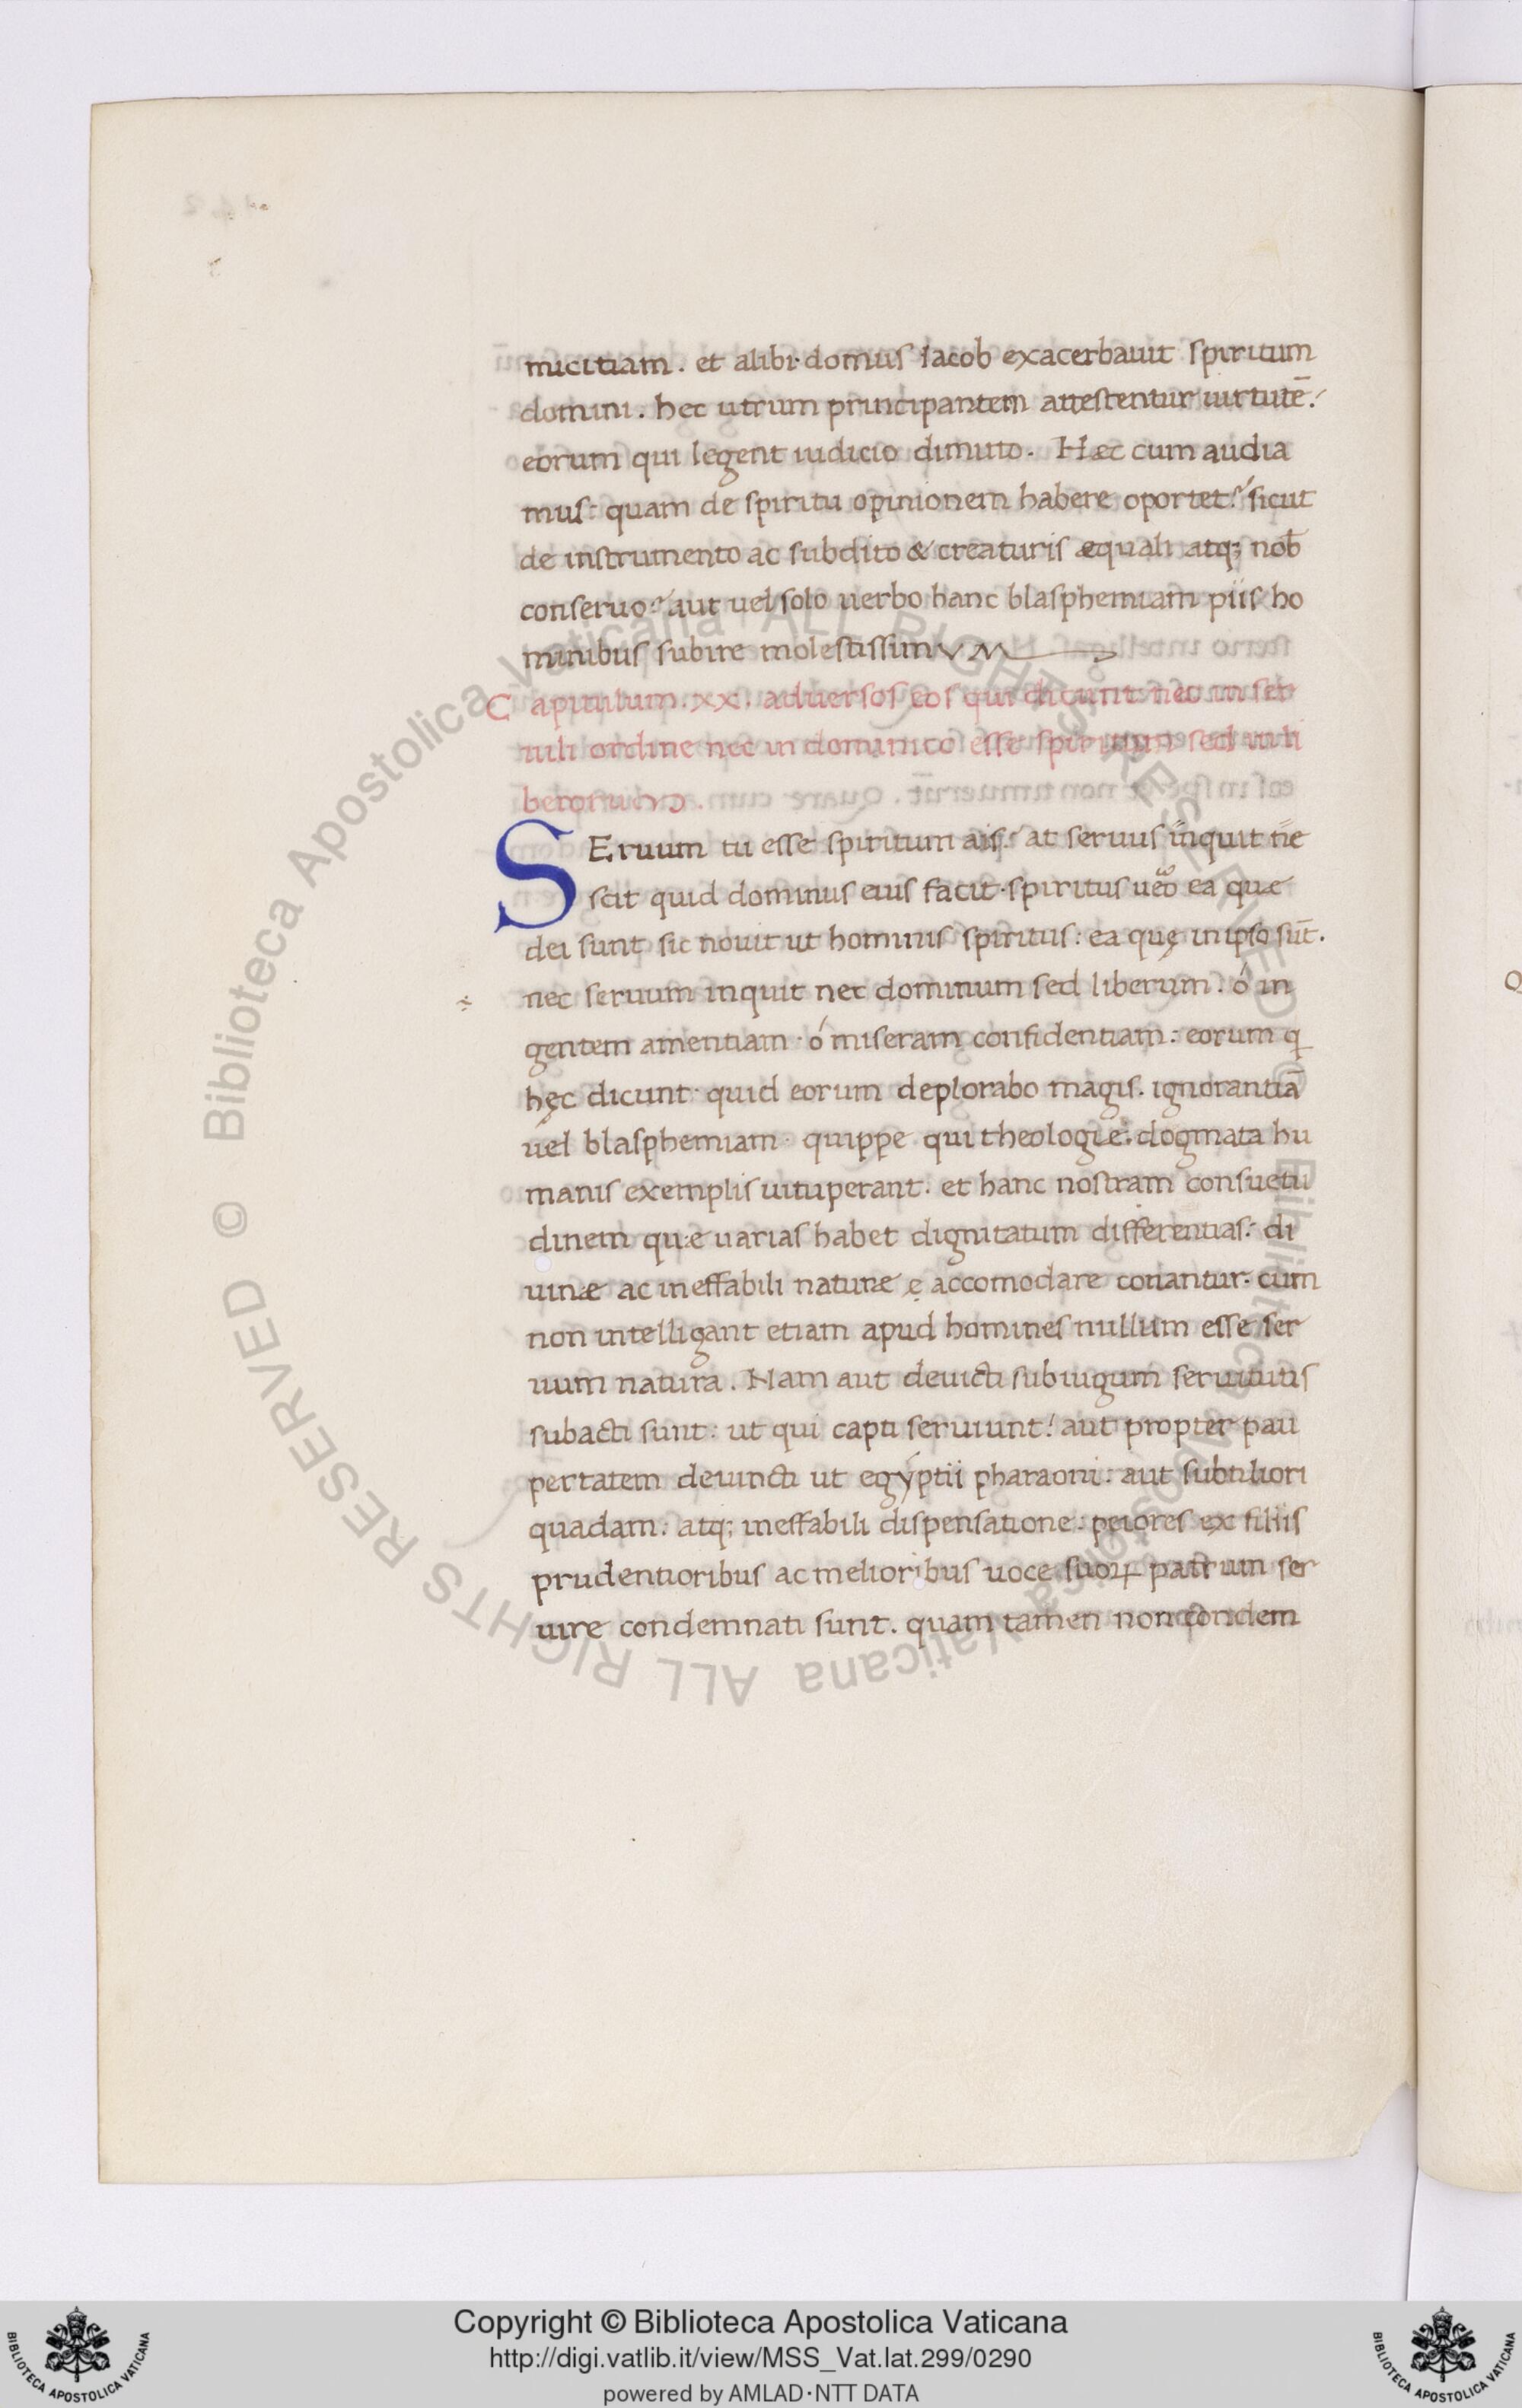 micitiam. et alibi·domus Iacob exacerbauit spiritum
domini. hec utrum principantem attestentur uirtutē?
eorum qui legent iudicio dimitto. Hæc cum audia
mus: quam de spiritu opinionem habere oportet? sicut
de instrumento ac subdito & creaturis æquali atq; nob̄
conseruo? aut uel solo uerbo hanc blasphemiam piis ho
minibus subire molestissimVM
Capitulum.xx. aduersos eos qui dicunt nec in ser
uili ordine nec in dominico esse spiritum sed in li
berorum.
SEruum tu esse spiritum ais? at seruus inquit ne
scit quid dominus eius facit·spiritus ūeo ea quæ
dei sunt sic nouit ut hominis spiritus: ea quę in ipso sūt.
nec seruum inquit nec dominum sed liberum. ó in
gentem amentiam·ó miseram confidentiam: eorum q
hęc dicunt· quid eorum deplorabo magis. ignorantiā
uel blasphemiam· quippe qui theologiæ dogmata hu
manis exemplis uituperant. et hanc nostram consuetu
dinem quæ uarias habet dignitatum differentias: di
uinæ ac ineffabili naturæ ę accomodare conantur. cum
non intelligant etiam apud homines nullum esse ser
uum natura. Nam aut deuicti sub iugum seruitutis
subacti sunt: ut qui capti seruiunt! aut propter pau
pertatem deuincti ut egýptii pharaoni: aut subtiliori
quadam: atq; ineffabili dispensatione: peiores ex filiis
prudentioribus ac melioribus uoce suoꝝ patrum ser
uire condemnati sunt. quam tamen non condem
Biblioteca Apostolica Vaticana ALL RIGHTS RESERVED ©
Biblioteca Apostolica Vaticana ALL RIGHTS RESERVED ©
Copyright © Biblioteca Apostolica Vaticana
http://digi.vatlib.it/view/MSS_Vat.lat.299/0290
powered by AMLAD·NTT DATA
BIBLIOTECA APOSTOLICA VATICANA
BIBLIOTECA APOSTOLICA VATICANA